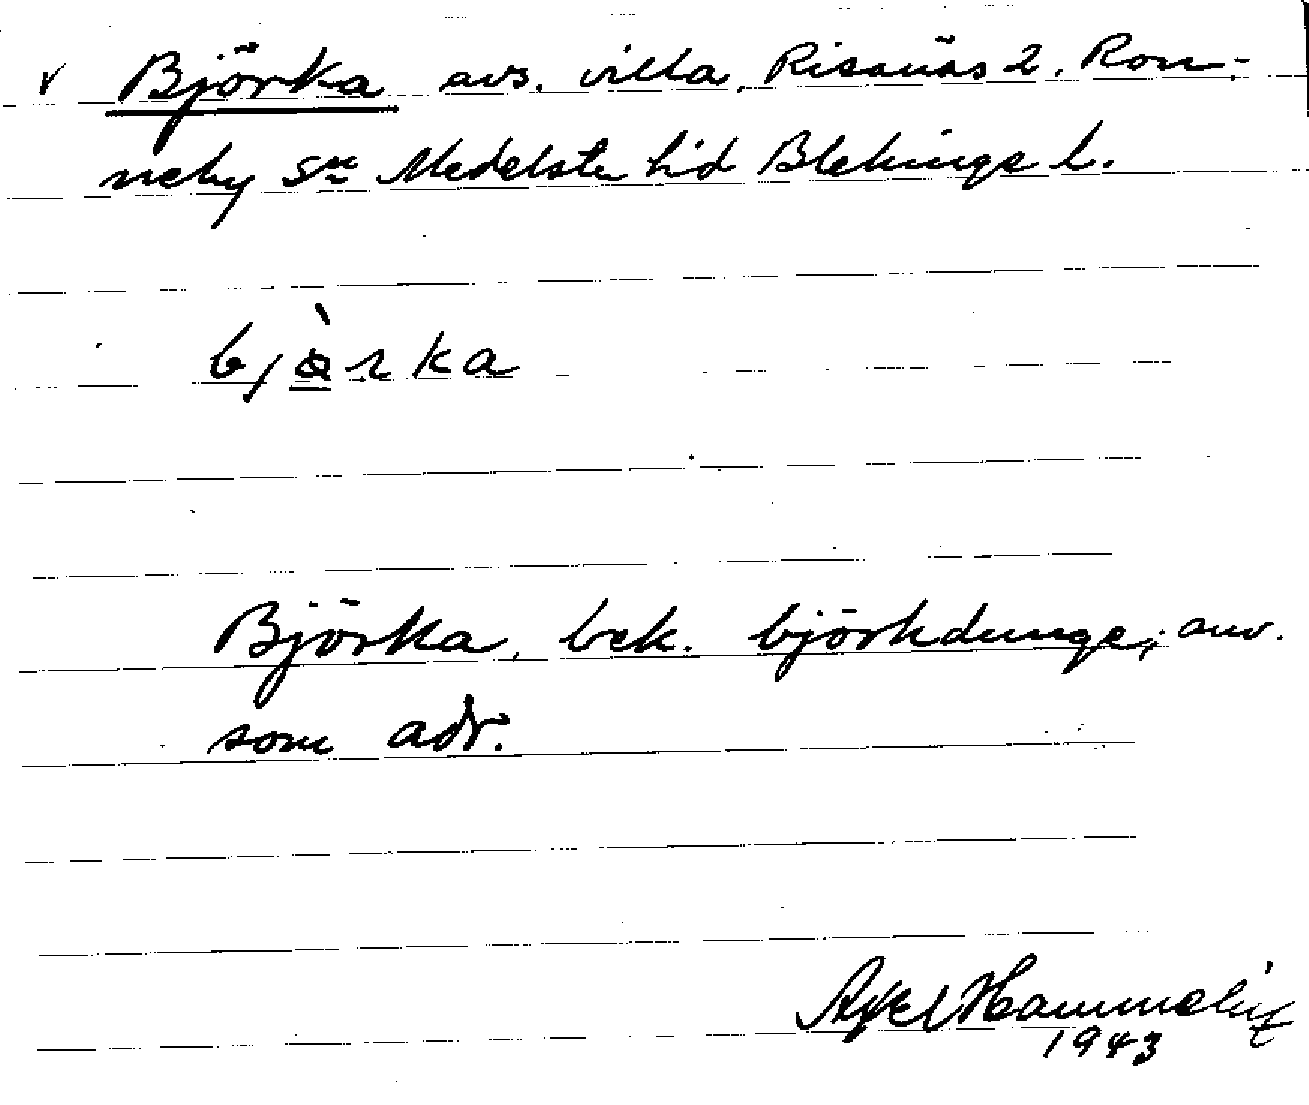 v Björka avs. villa, Risanäs 2. Ron-
neby sn Medelsta hd Blekinge l.
bjòrka
Björka, bek. björkdunge; anv.
som adr.
Axel
1943